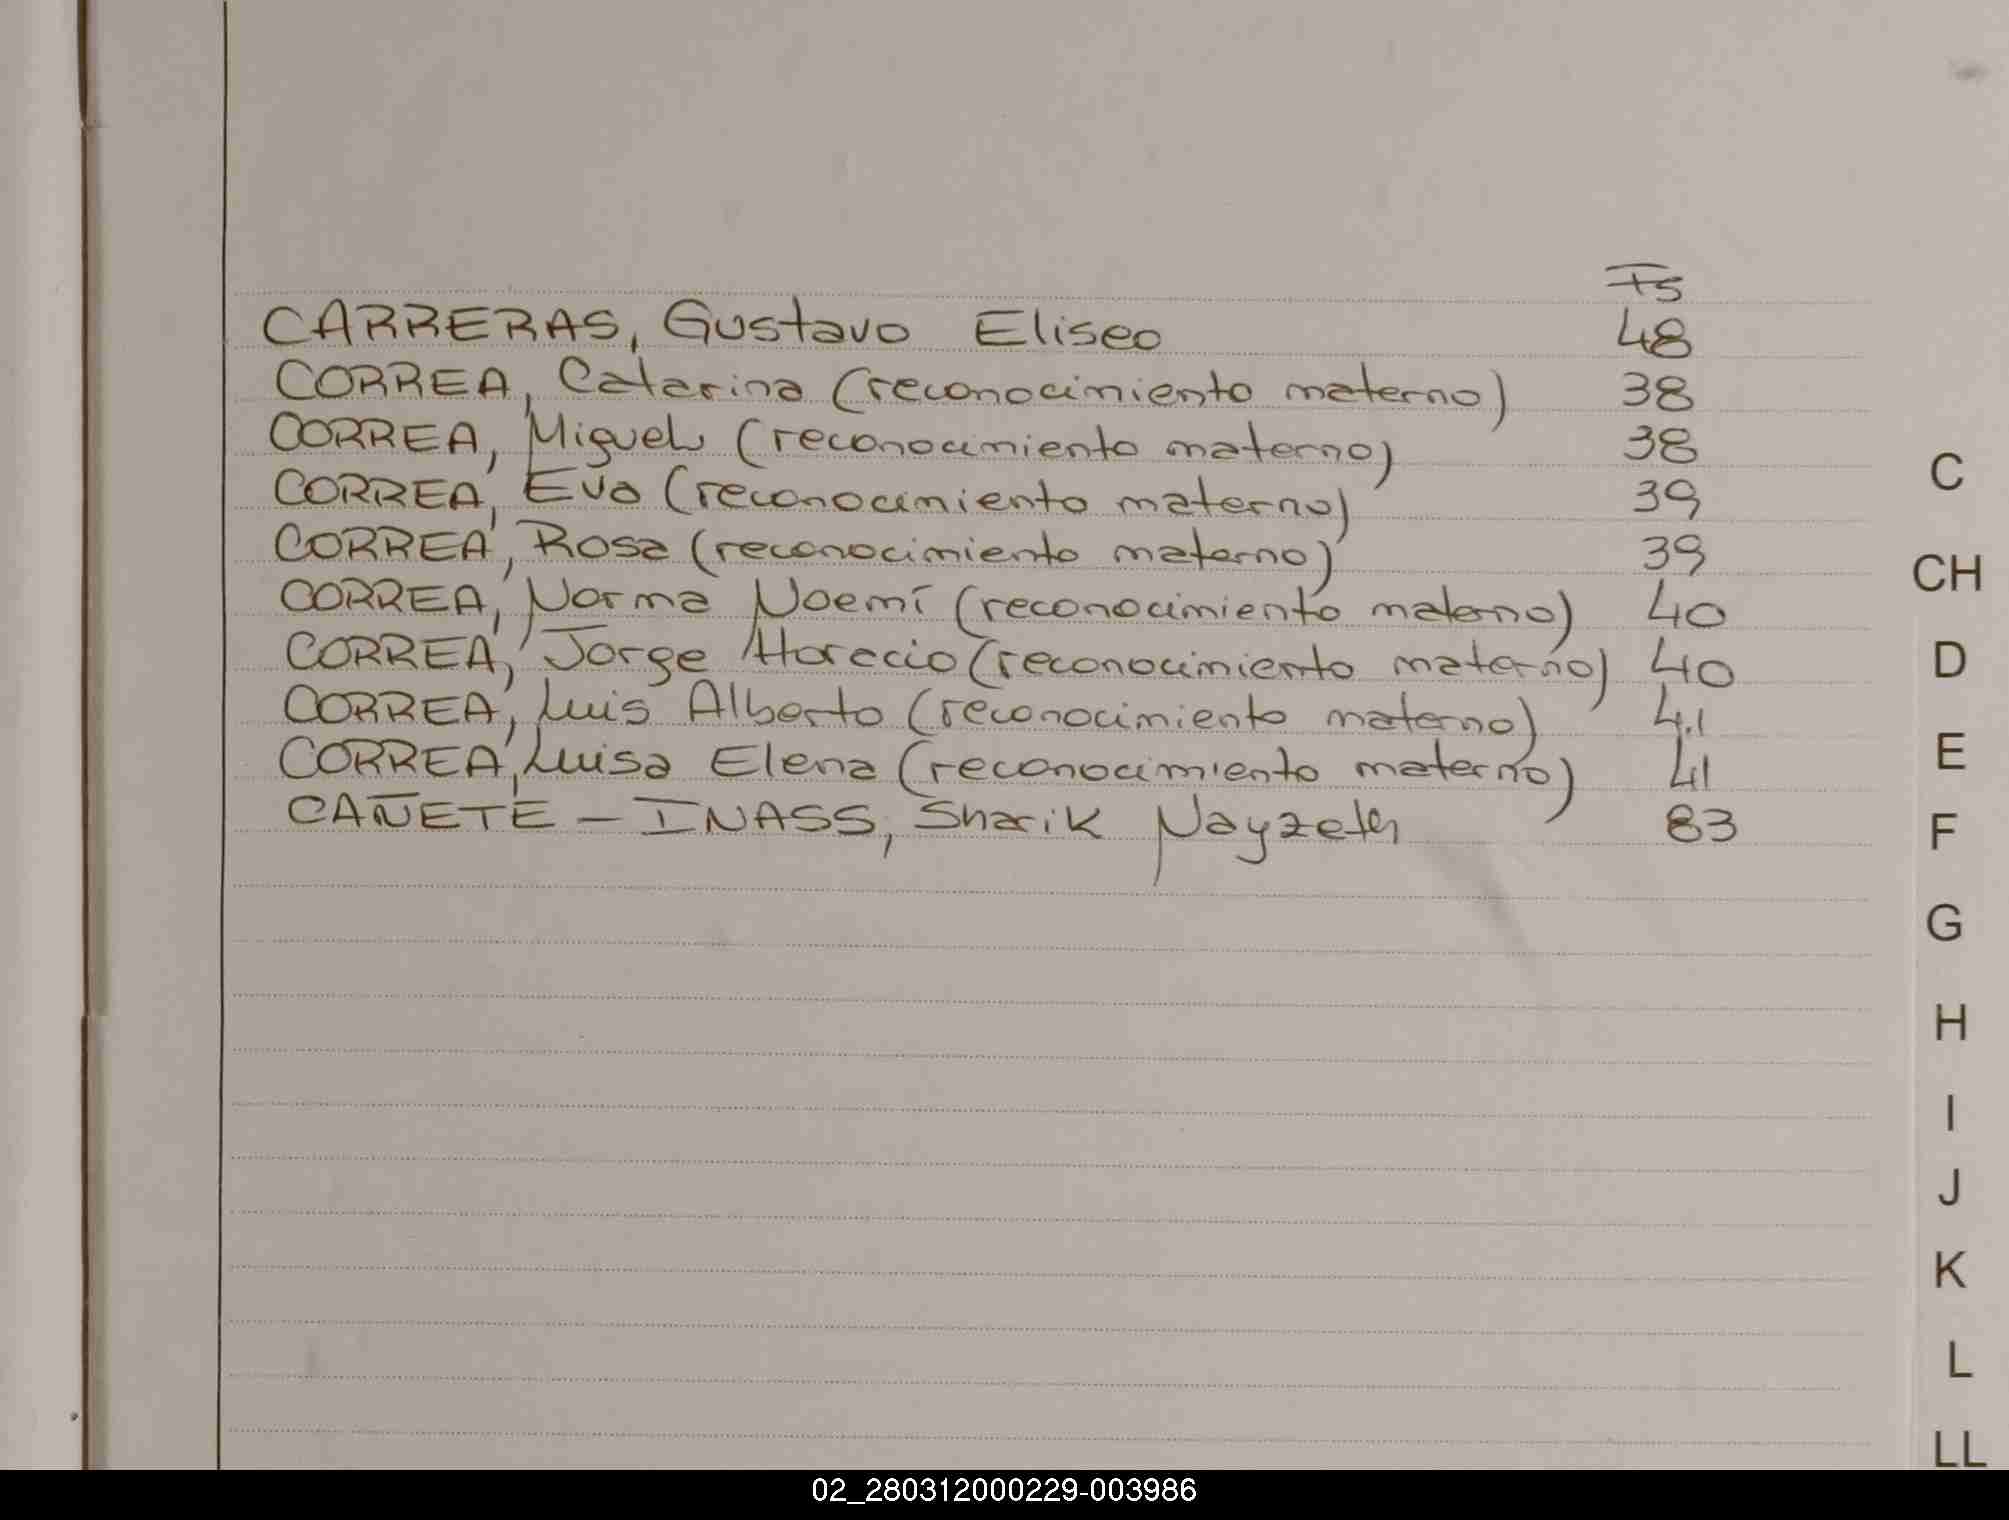 Fs
CARRERAS, Gustavo Eliseo 48
CORREA, Catarina (reconocimiento materno) 38
CORREA, Miguel (reconocimiento materno) 38
CORREA, Eva (reconocimiento materno) 39
CORREA, Rosa (reconocimiento materno) 39
CORREA, Norma Noemí (reconocimiento materno) 40
CORREA, Jorge Horacio (reconocimiento materno) 40
CORREA, Luis Alberto (reconocimiento materno) 41
CORREA, Luisa Elena (reconocimiento materno) 41
CAÑETE - INASS, Sharik Nayzeth 83
C
CH
D
E
F
G
H
I
J
K
L
LL
02_280312000229-003986